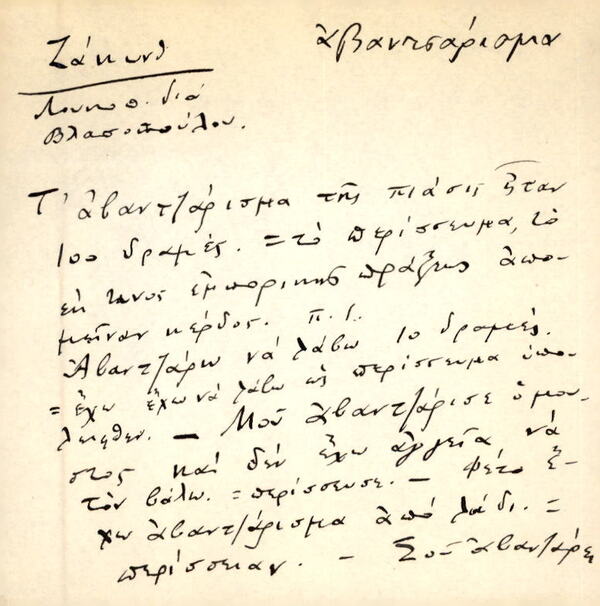 ἀβαντσάρισμα
Ζάκυνθ
Λουκοπ. διά
Βλασοπούλου.
Τ' ἀβαντζάρισμα τῆς πιάσις ἦταν
100 δραμές. = τὸ περίσσευμα, τὸ
ἐκ τινος ἐμπορικῆς πράξεως ἀπο-
μεῖναν κέρδος. π.χ.
Ἀβαντζάρω νά λάβω 10 δραμές.
= ἔχω ἔχω νά λάβω ὡς περίσσευμα ὑπο-
λειφθέν. — Μοῦ ἀβαντζάρισε ὁ μοῦ-
στος καί δέν ἔχω ἀγγεῖα νά
τόν βάλω. = περίσσευσε. — Φέτο ἔ-
χω ἀβαντζάρισμα ἀπό λάδι. =
περίσσειαν. — Σοῦ ἀβαντζάρει